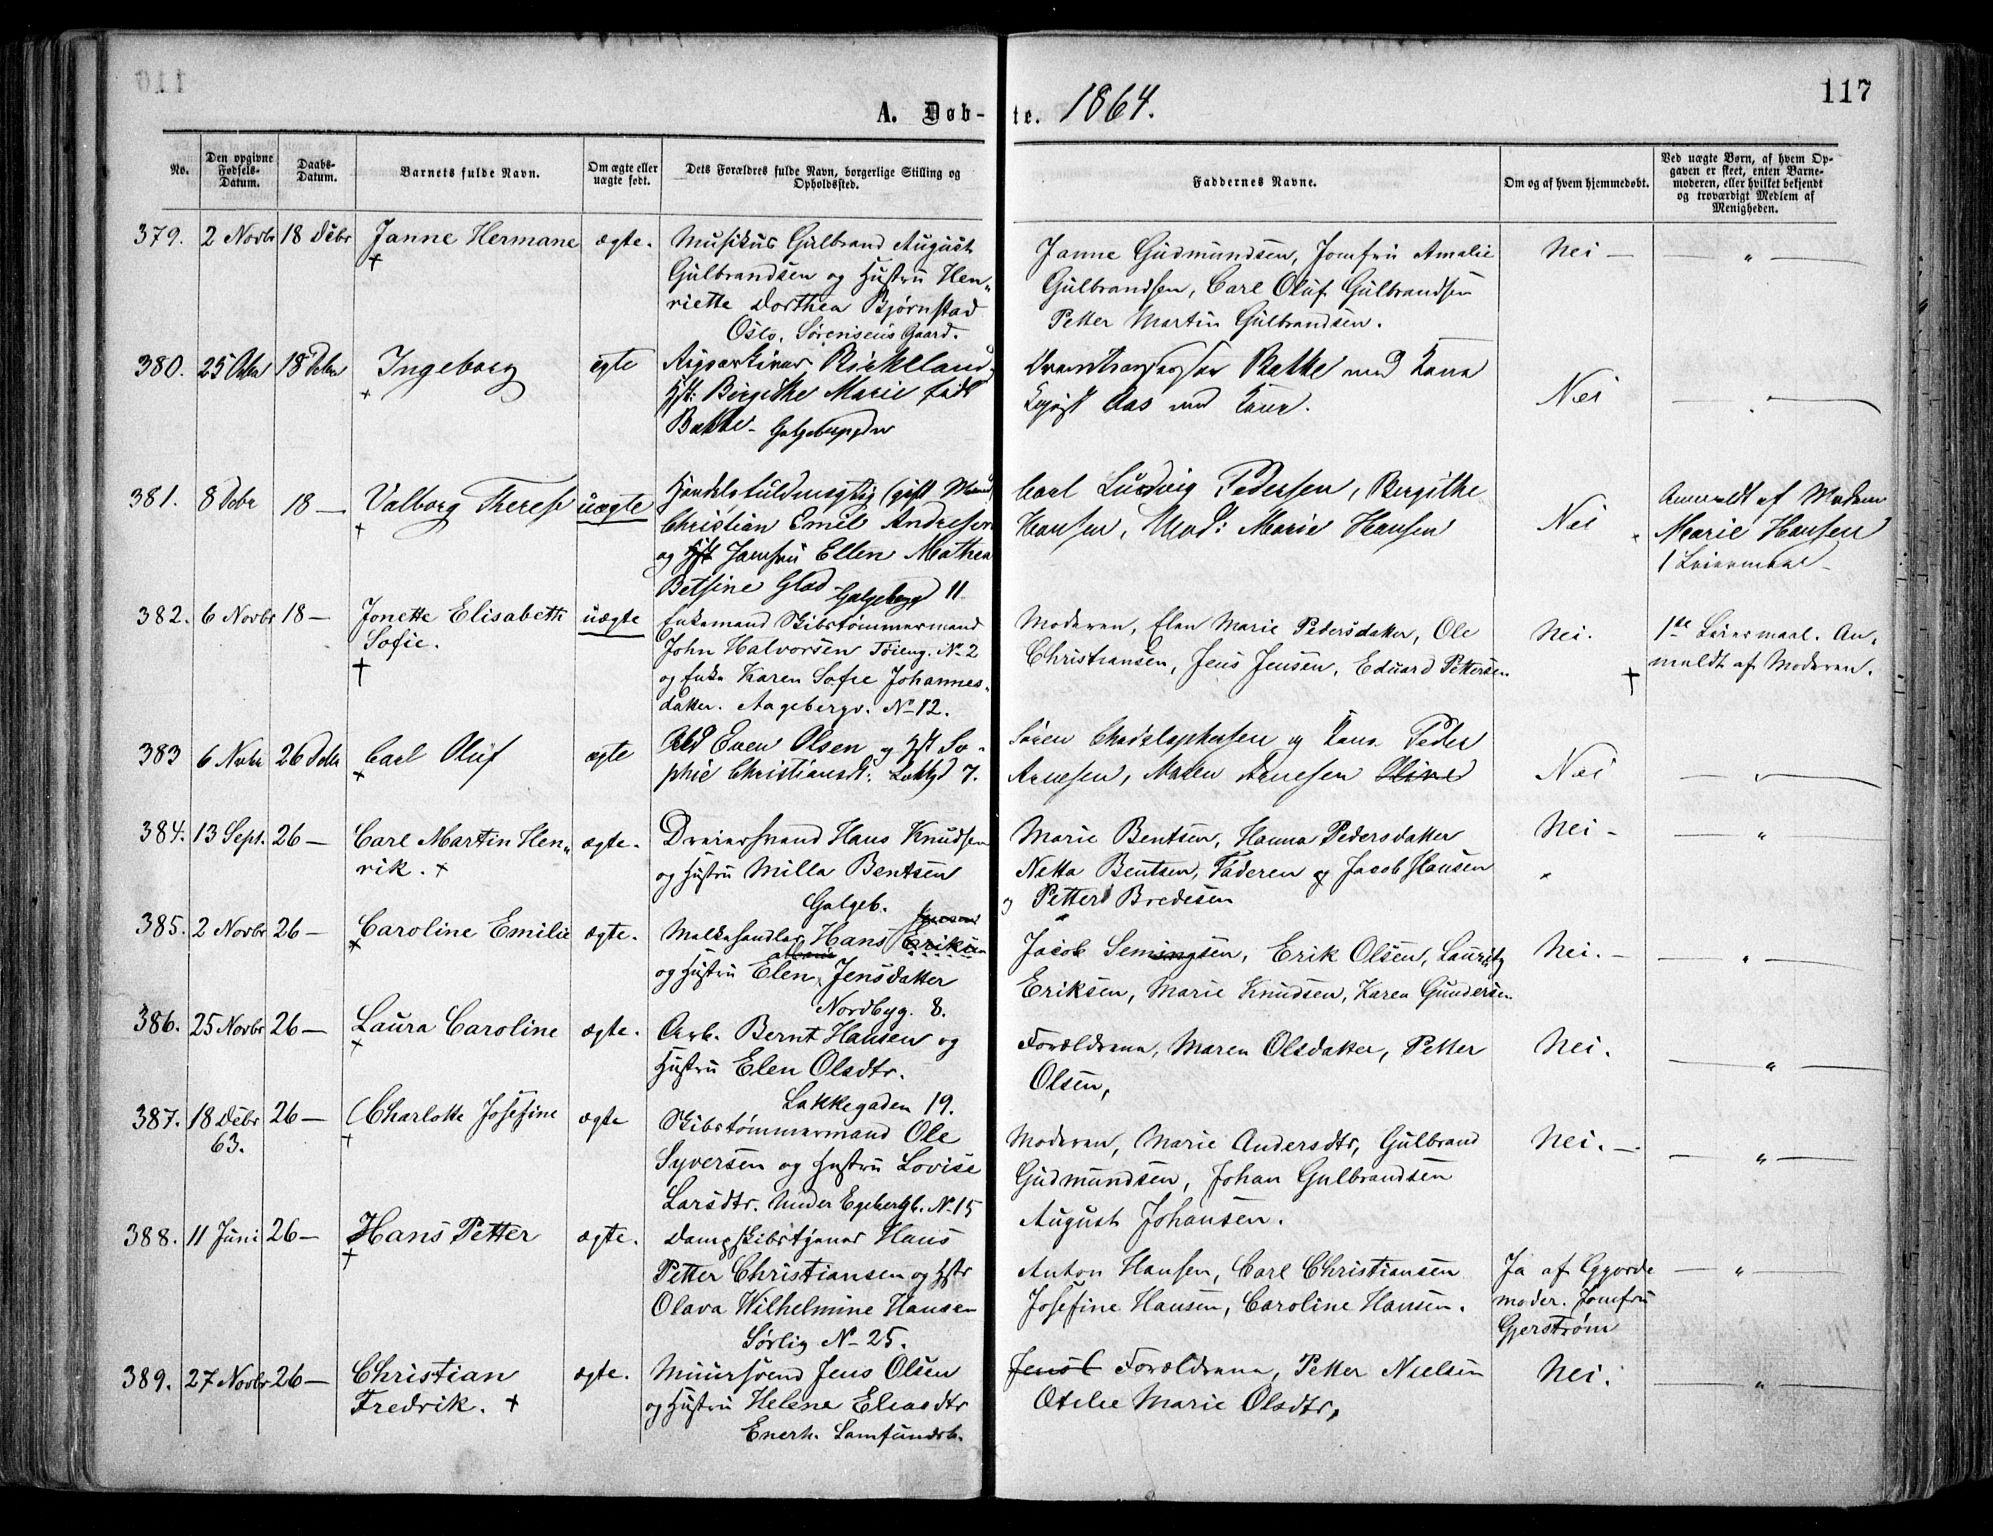 117
A. Døb- te. 1864.
No.
Den opgivne Fødsels-Datum.
Daabs-Datum.
Barnets fulde Navn.
Om ægte eller uægte født.
Dets Forældres fulde Navn, borgerlige Stilling og Opholdssted.
Faddernes Navne.
Om og af hvem hjemmedøbt.
Ved uægte Børn, af hvem Opgaven er skeet, enten Barnemoderen, eller hvilket bekjendt og troværdigt Medlem af Menigheden.
379. 2 Novbr 18 Debr Janne Hermane ægte. Musikus Gulbrand August
Gulbrandsen og Hustru Hen„
riette Dorthea Bjørnstad
Oslo, Sørensens Gaard.
Janne Gudmundsen, Jomfru Amalie
Gulbrandsen, Carl Oluf Gulbrandsen
Petter Martin Gulbrandsen.
Nei — — „ —
380. 25 18 Debr Ingeborg ægte
Hst: Birgithe Marie født
Bakke -
Bakke med Kone
Aas med Kone.
Nei
381. 8 Debr 18 — Valborg Therese uægte Handelsfuldmægtig (gift Mand)
Christian Emil Andresen
og Jomfru Ellen Mathea
Betsine Glad Galgeberg 11
Carl Ludvig Pedersen, Bergithe
Hansen, Mad: Marie Hansen
Nei
Anmeldt af Madam
Marie Hansen
1 Leiermaal
382. 6 Novbr 18 — Jonette Elisabeth
Sofie.
uægte Enkemand Skibstømmermand
John Halvorsen Tøieng. No 2
og Enke Karen Sofie Johannes„
datter. Aagebergv. No 12.
Moderen, Elen Marie Pedersdatter, Ole
Christiansen, Jens Jensen, Eduard Pettersen
Nei.
1ste Leiermaal. An„
meldt af Moderen.
383 6 Novbr 26 Debr Carl Oluf ægte Arbd Even Olsen og Hst So-
phie Christiansdt: 7.
Søren og Kone Peder
Arnesen, Maren Arnesen
Nei
384. 13 Sept. 26 — Carl Martin Hen„
rik.
ægte. Dreiersvend Hans Knudsen
og Hustru Milla Bentsen
Galgeb.
Marie Bentsen, Hanna Pedersdatter
Netta Bentsen, Faderen og Jacob Hansen
og Petter Bredesen
Nei -
385. 2 Novbr 26 — Caroline Emilie ægte. Melkehandler Hans Eriksen
og Hustru Elen Jensdatter
Nordbyg. 8.
Jacob Semingsen, Erik Olsen, Lauritz
Eriksen, Marie Knudsen, Karen Gundersen
Nei. —
386. 25 Novbr 26 — Laura Caroline ægte. Arb. Bernt Hansen og
Hustru Elen Olsdtr.
Lakkegaden 19.
Forældrene, Maren Olsdatter, Petter
Olsen,
Nei.
387. 18 Debr
63.
26 — Charlotte Josefine ægte Skibstømmermand Ole
Syversen og Hustru Lovise
Larsdtr. Under Egebergb. No 15
Moderen, Marie Andersdtr, Gulbrand
Gudmundsen, Johan Gulbrandsen
August Johansen.
Nei. —
388. 11 Juni 26 — Hans Petter ægte. Dampskibstjener Hans
Petter Christiansen og Hstr
Olava Wilhelmine Hansen
Sørlig No 25.
Anton Hansen, Carl Christiansen
Josefine Hansen, Caroline Hansen.
Ja af Gjorde
moder. Jomfru
Gjerstrøm
389. 27 Novbr 26 — Christian
Fredrik.
ægte. Muursvend Jens Olsen
og Hustru Helene Eliasdtr
Enerh. Samfundsb.
Forældrene, Petter Nielsen
Otelie Marie Olsdtr,
Nei.